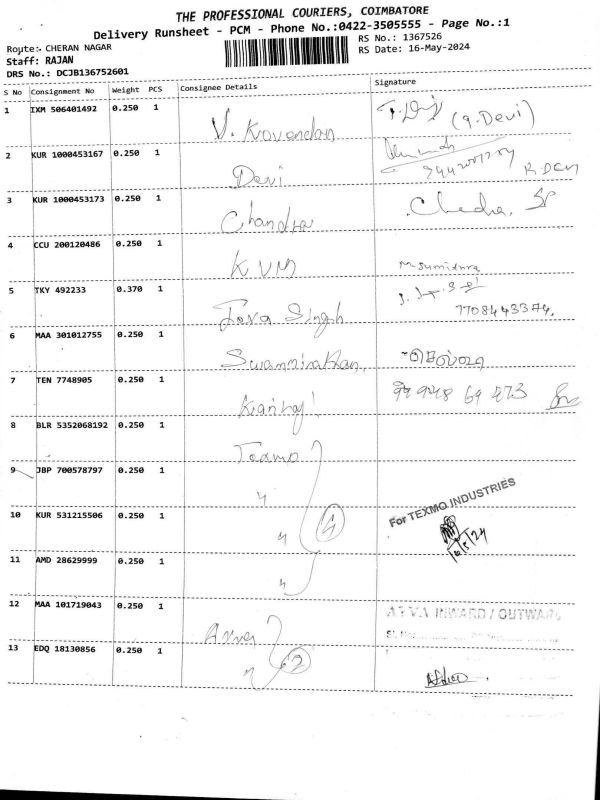 THE PROFESSIONAL COURIERS, COIMBATORE
Delivery Runsheet - PCM - Phone No.:0422-3505555 - Page No.:1
Route:- CHERAN NAGAR RS No.: 1367526
Staff: RAJAN RS Date: 16-May-2024
DRS No.: DCJB136752601
S No Consignment No Weight PCS Consignee Details Signature
1 IXM 506401492 0.250 1 V. Kavandan (q.Devi)
2 KUR 1000453167 0.250 1 Devi R.Devi
3 KUR 1000453173 0.250 1 Chandra
4 CCU 200120486 0.250 1 KVM
5 TKY 492233 0.370 1 Singh 7708443374.
6 MAA 301012755 0.250 1
7 TEN 7748905 0.250 1
8 BLR 5352068192 0.250 1 Texmo
9 JBP 700578797 0.250 1 "
10 KUR 531215506 0.250 1 " 4 For TEXMO INDUSTRIES
16/5/24
11 AMD 28629999 0.250 1 "
12 MAA 101719043 0.250 1 INWARD / OUTWARD
13 EDQ 18130856 0.250 1 " 2